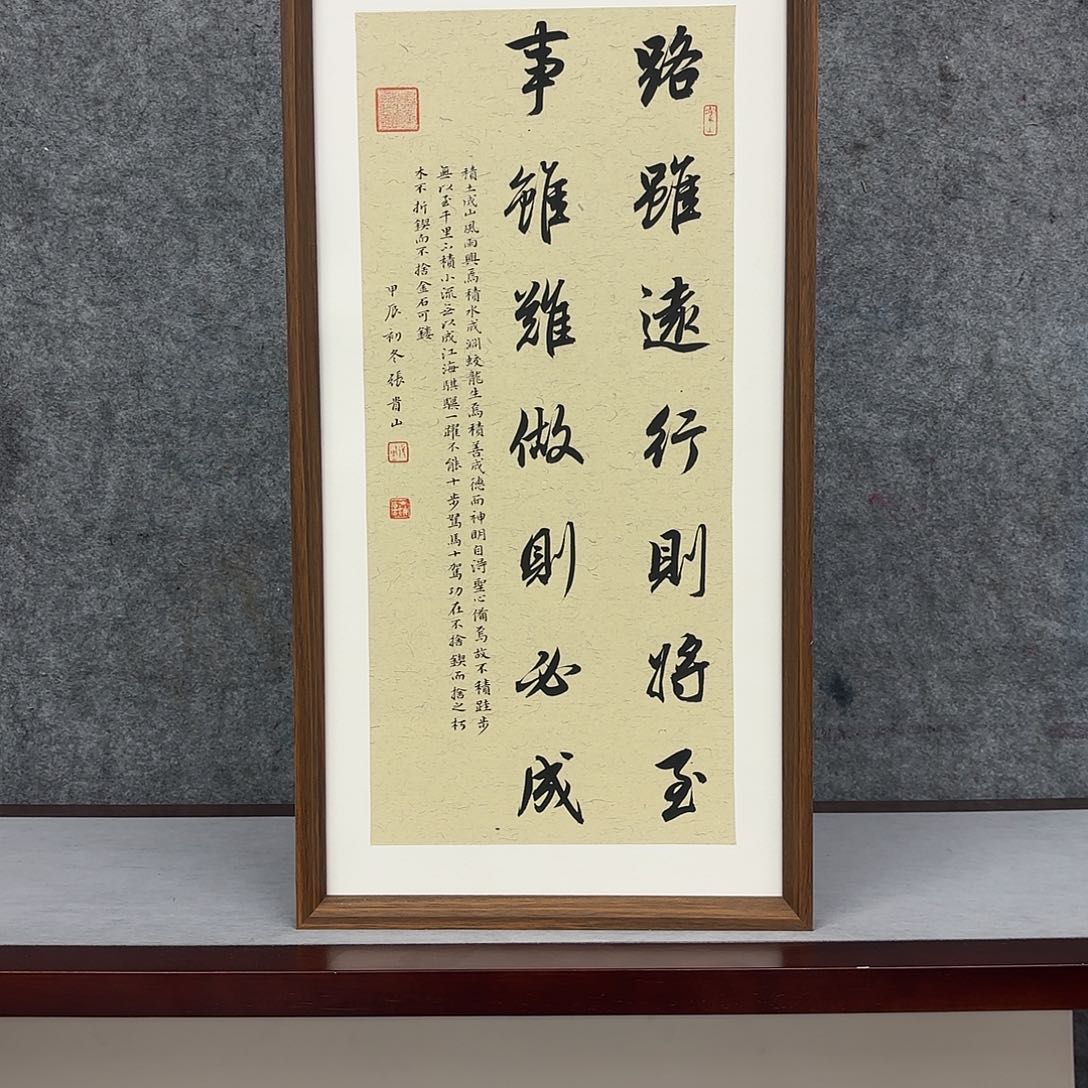 路雖遠行則將至
事雖難做則必成
積土成山風雨興焉積水成淵蛟龍生焉積善成德而神明自得聖心備焉故不積跬步
無以至千里不積小流無以成江海騏驥一躍不能十步駑馬十駕功在不捨鍥而捨之朽
木不折鍥而不捨金石可鏤
甲辰初冬張貴山